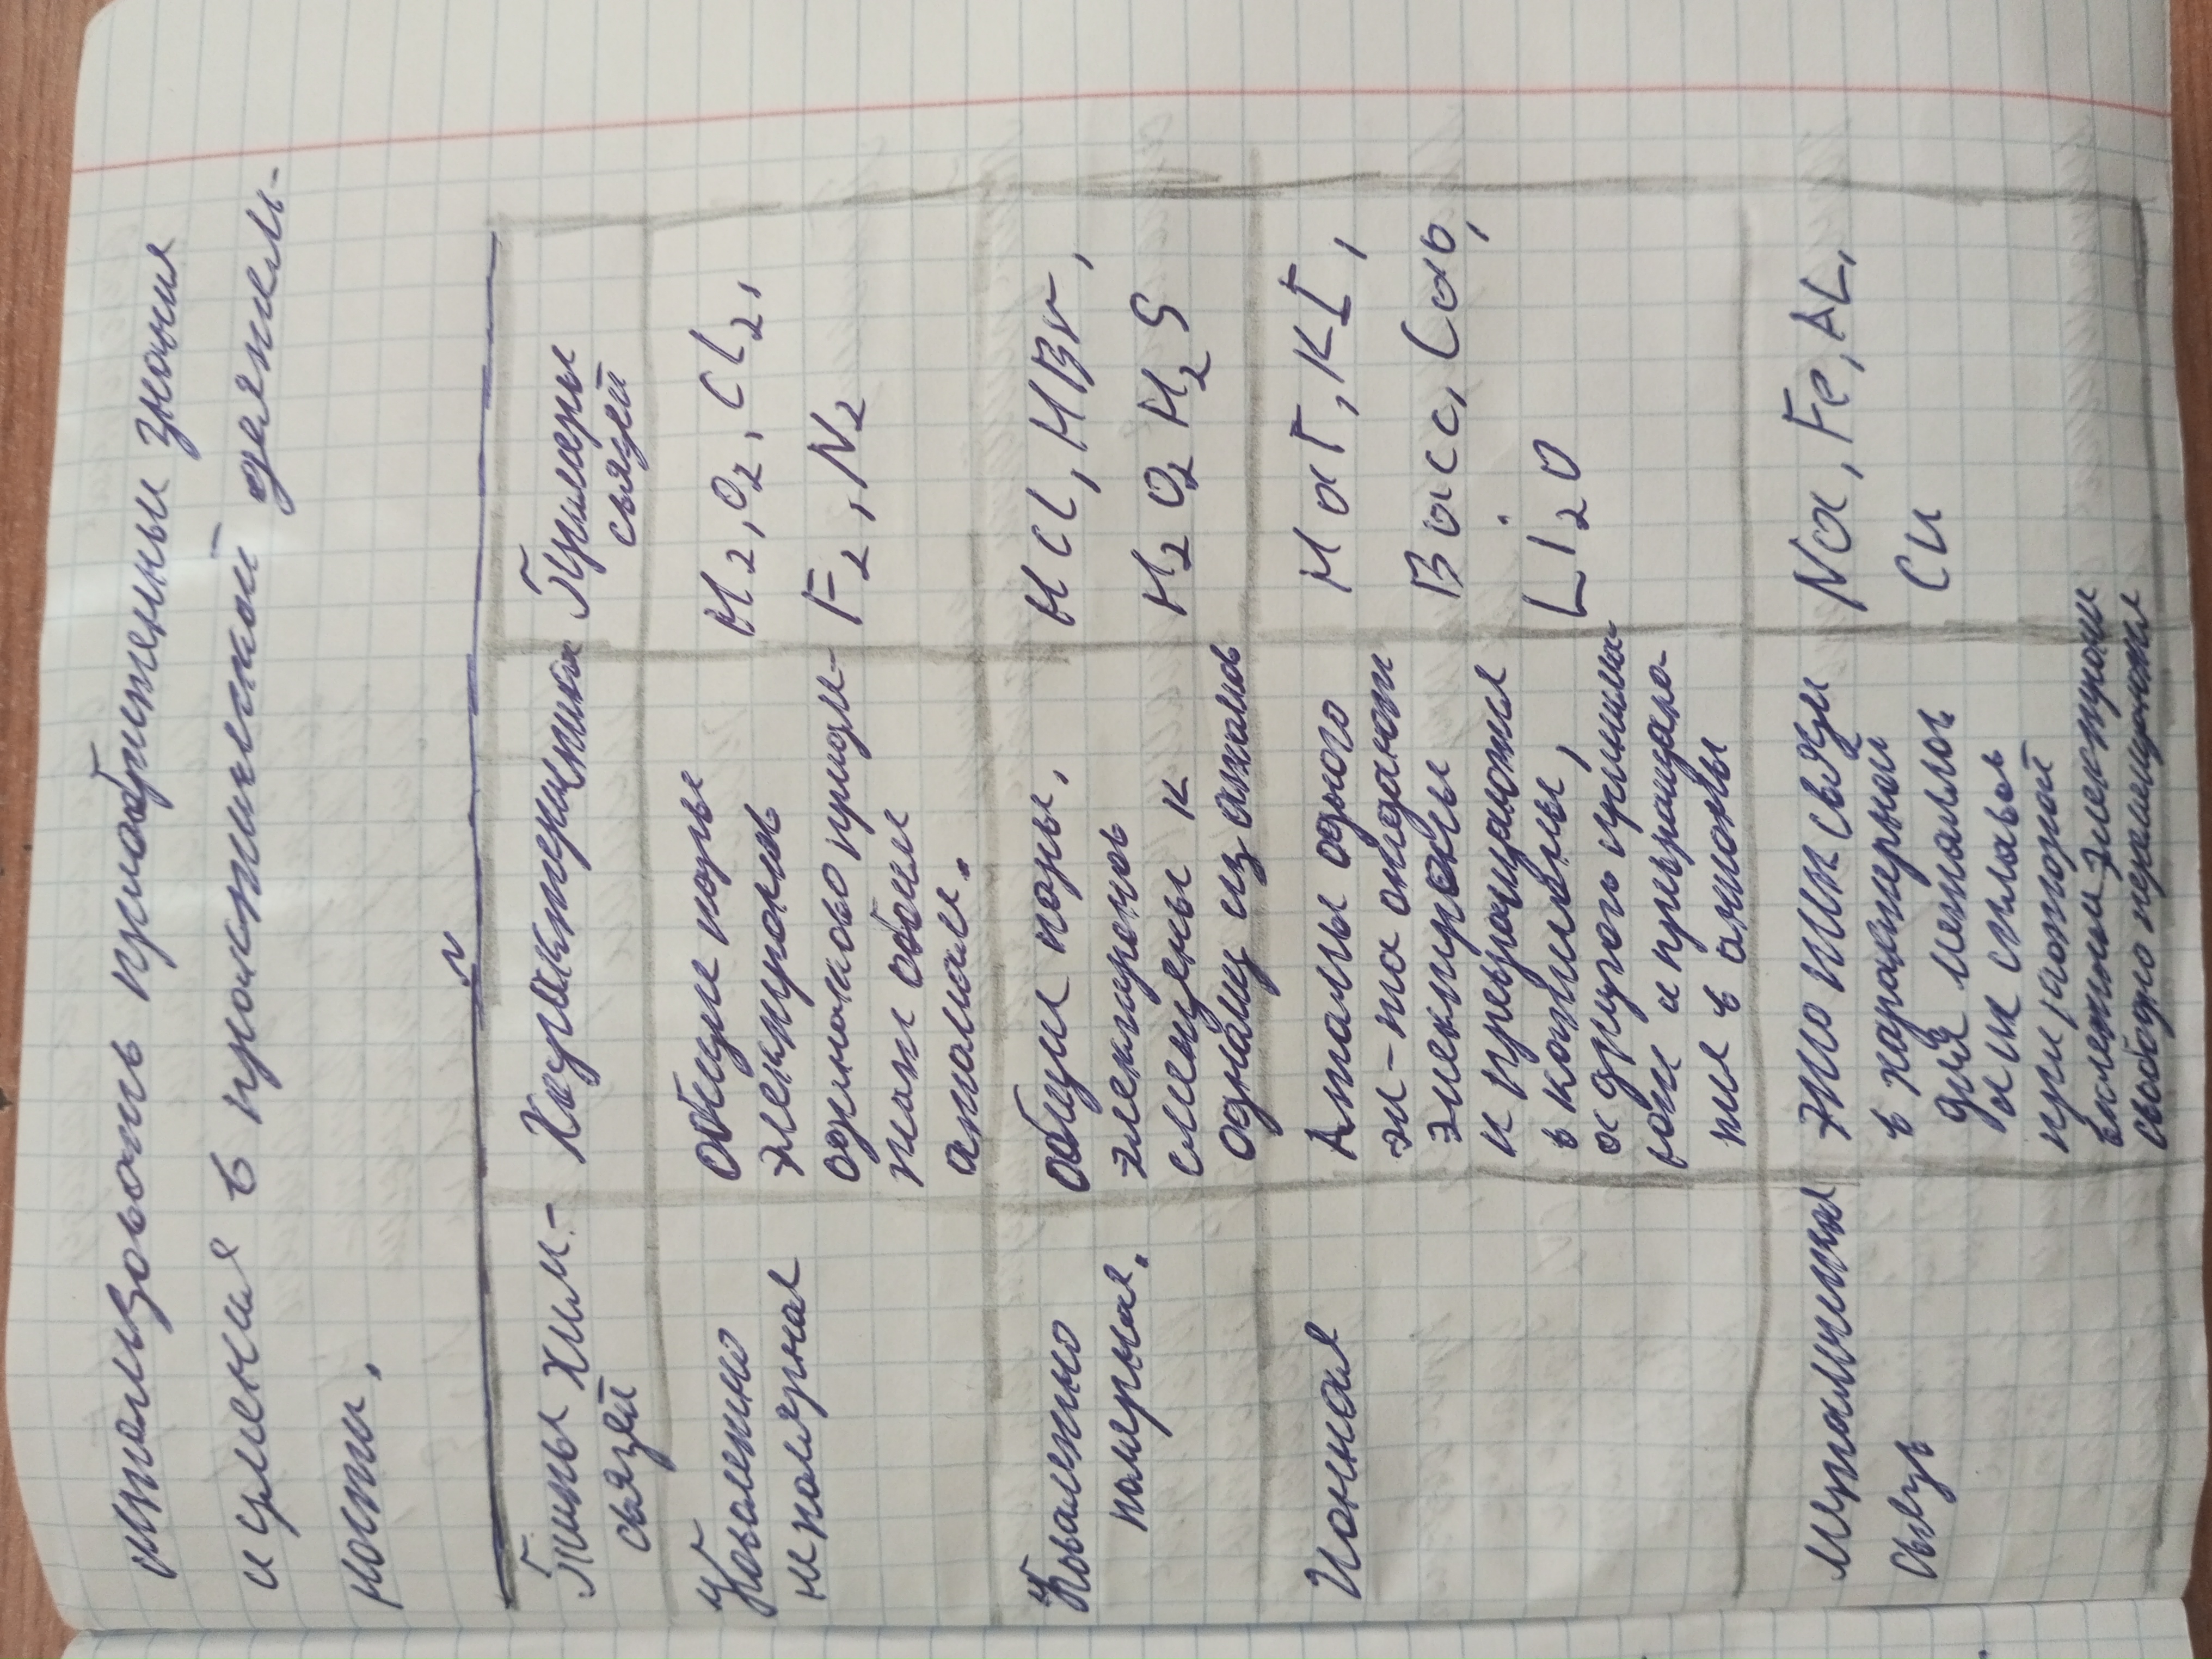 использовать приобретенные знания
и умения в практической деятель-
ности.
2
Типы хим-
связей
Характеристика
Примеры
связей
Ковалентно
неполярная
общие пары
электронов
одинаково принад-
лежат обоим
атомам.
H2, O2, CL2,
F2, N2
Ковалентно
полярная.
общие пары,
электронов
смещены к
одному из атомов
HCL, HBr,
H2O2 H2S
Ионная
Атомы одного
эл-та отдают
электроны
и превращаются
в катионы,
а другого принима-
ют и превраща-
тся в анионы
NaF, KI,
Bacc, Cao,
Li2O
Металлическая
связь
это тип связи
характерный
для металлов
и их сплавов
при которой
внешние электроны
свободно перемещаются
Na, Fe, AL,
Cu